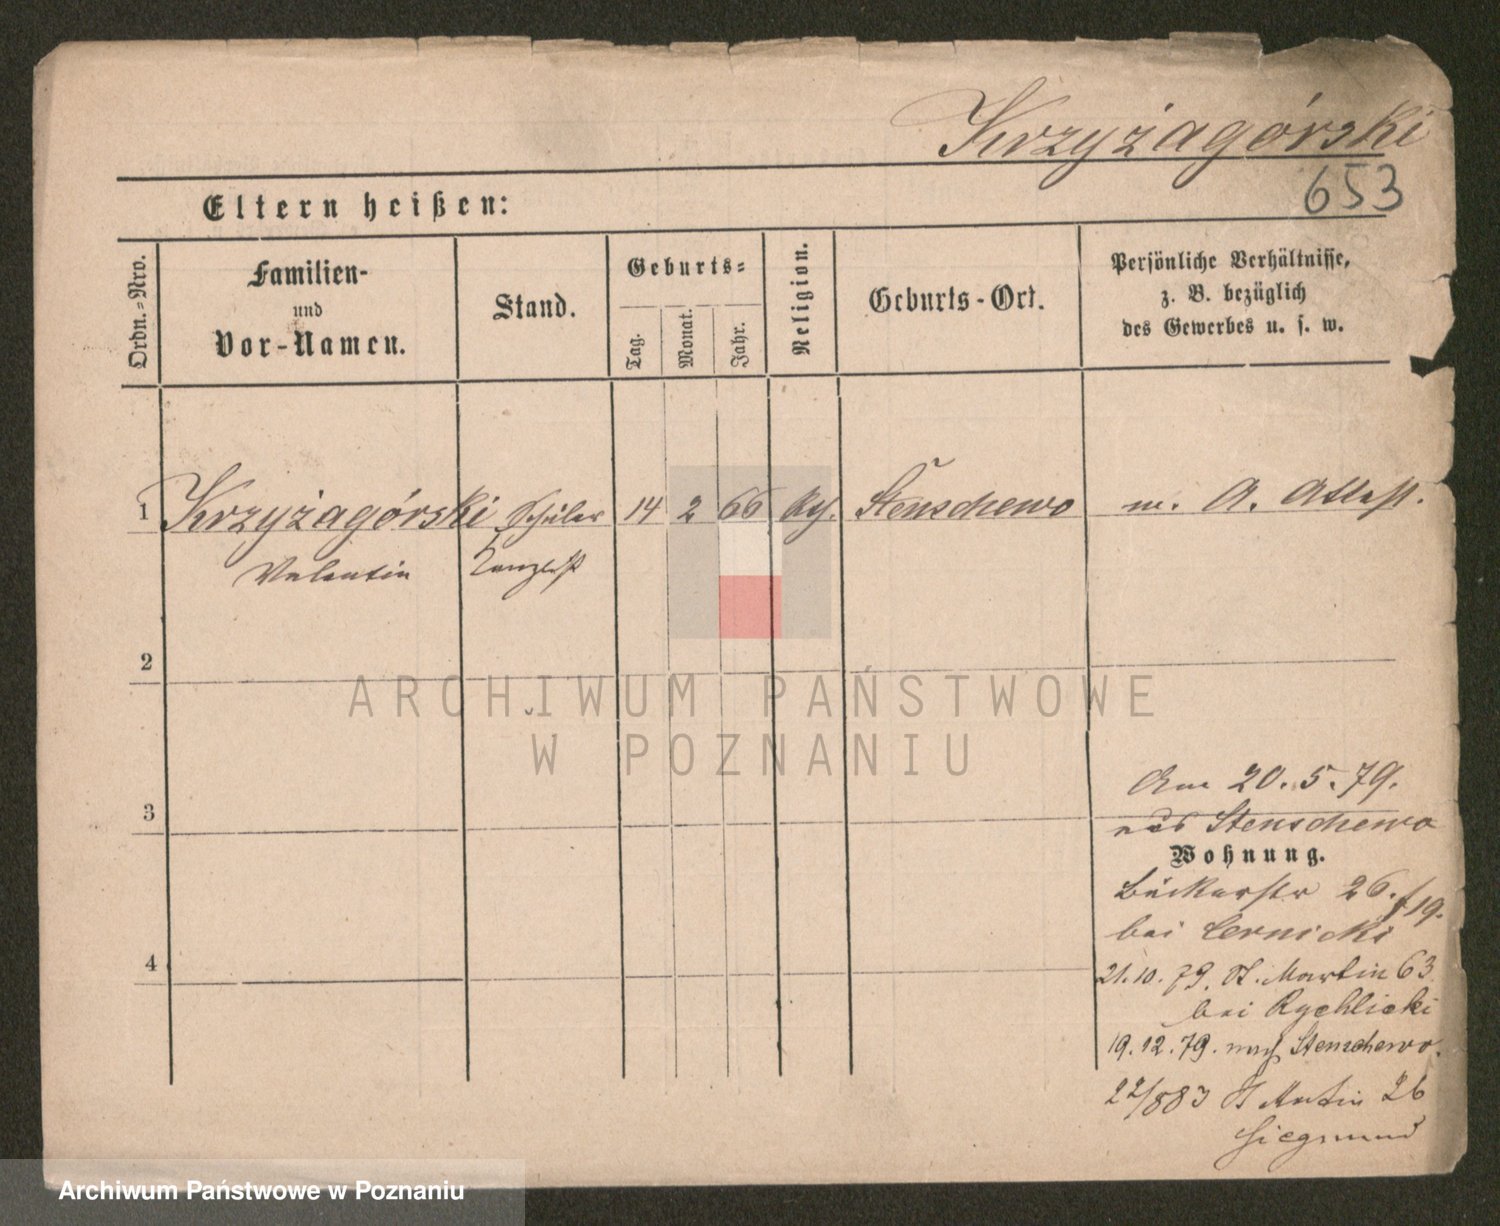 Krzyżagórski
653
Eltern heißen:
Ordn.-Nro.
Familien-
und
Vor-Namen.
Stand.
Geburts-
Tag.
Monat.
Jahr.
Religion.
Geburts-Ort.
Persönliche Verhältnisse,
z. B. bezüglich
des Gewerbes u. s. w.
1 Krzyżagórski Schüler 14 2 66 kth. Stenschewo m. A. Attest.
Valentin Kanzlist
2
3
4
Am 20.5.79.
aus Stenschewo
Wohnung.
Bäckerstr 26. f 19.
bei Cernicki
21.10.79. St. Martin 63
bei Rychlicki
19.12.79. nach Stenschewo.
22/883 St Martin 26
Siegmund
ARCHIWUM PAŃSTWOWE
W POZNANIU
Archiwum Państwowe w Poznaniu